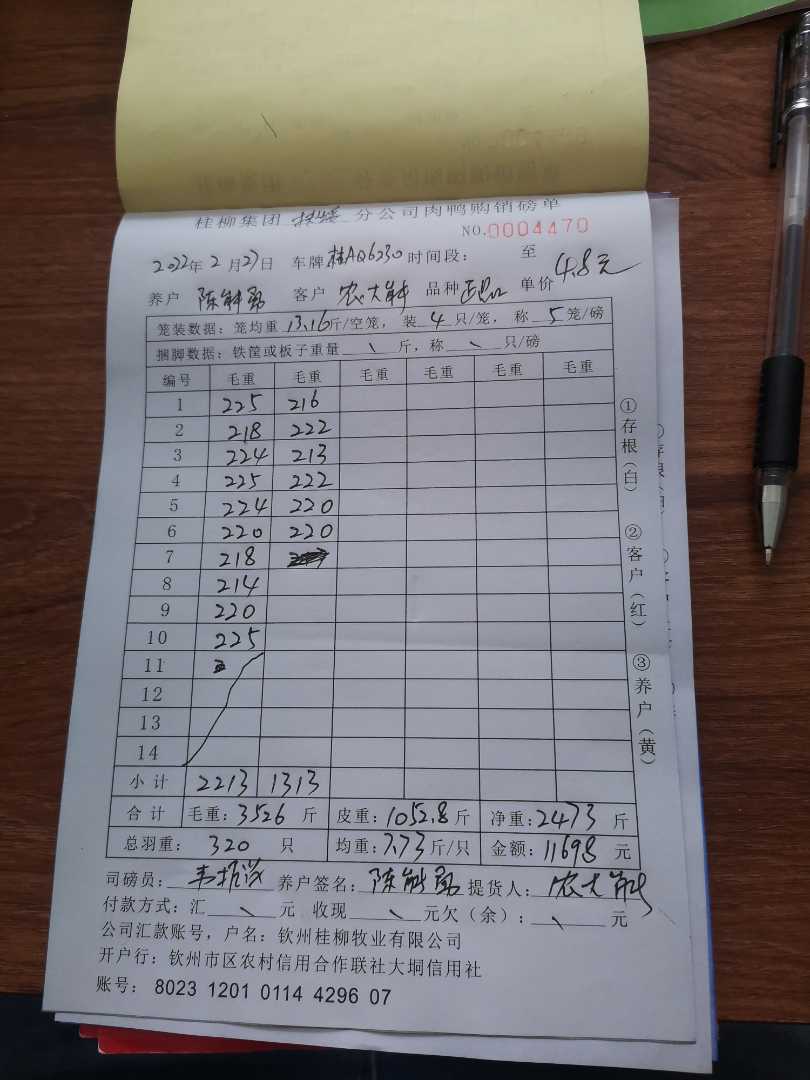 桂柳集团 扶绥 分公司肉鸭购销磅单
NO.0004470
2022年 2月27日 车牌桂AQ6230 时间段： 至
养户 陈 客户 农大 品种 单价 4.8元
笼装数据：笼均重 13.16 斤/空笼，装 4 只/笼，称 5 笼/磅
捆脚数据：铁筐或板子重量 \ 斤，称 \ 只/磅
编号 毛重 毛重 毛重 毛重 毛重 毛重
1 225 216
2 218 222
3 224 213
4 225 222
5 224 220
6 220 220
7 218
8 214
9 220
10 225
11
12
13
14
小计 2213 1313
合计 毛重：3526 斤 皮重：1052.8斤 净重：2473 斤
总羽重： 320 只 均重：7.73斤/只 金额：11698 元
司磅员：韦 养户签名：陈 提货人：农大
付款方式：汇 \ 元 收现 \ 元欠（余）： \ 元
公司汇款账号，户名：钦州桂柳牧业有限公司
开户行：钦州市区农村信用合作联社大垌信用社
账号： 8023 1201 0114 4296 07
①存根（白）
②客户（红）
③养户（黄）